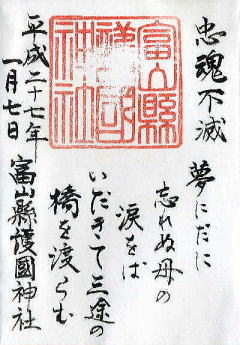 忠魂不滅
夢にだに
忘れぬ母の
涙をば
いだきて三途の
橋を渡らむ
富山縣護國神社
平成二十七年
一月七日
富山縣護國神社